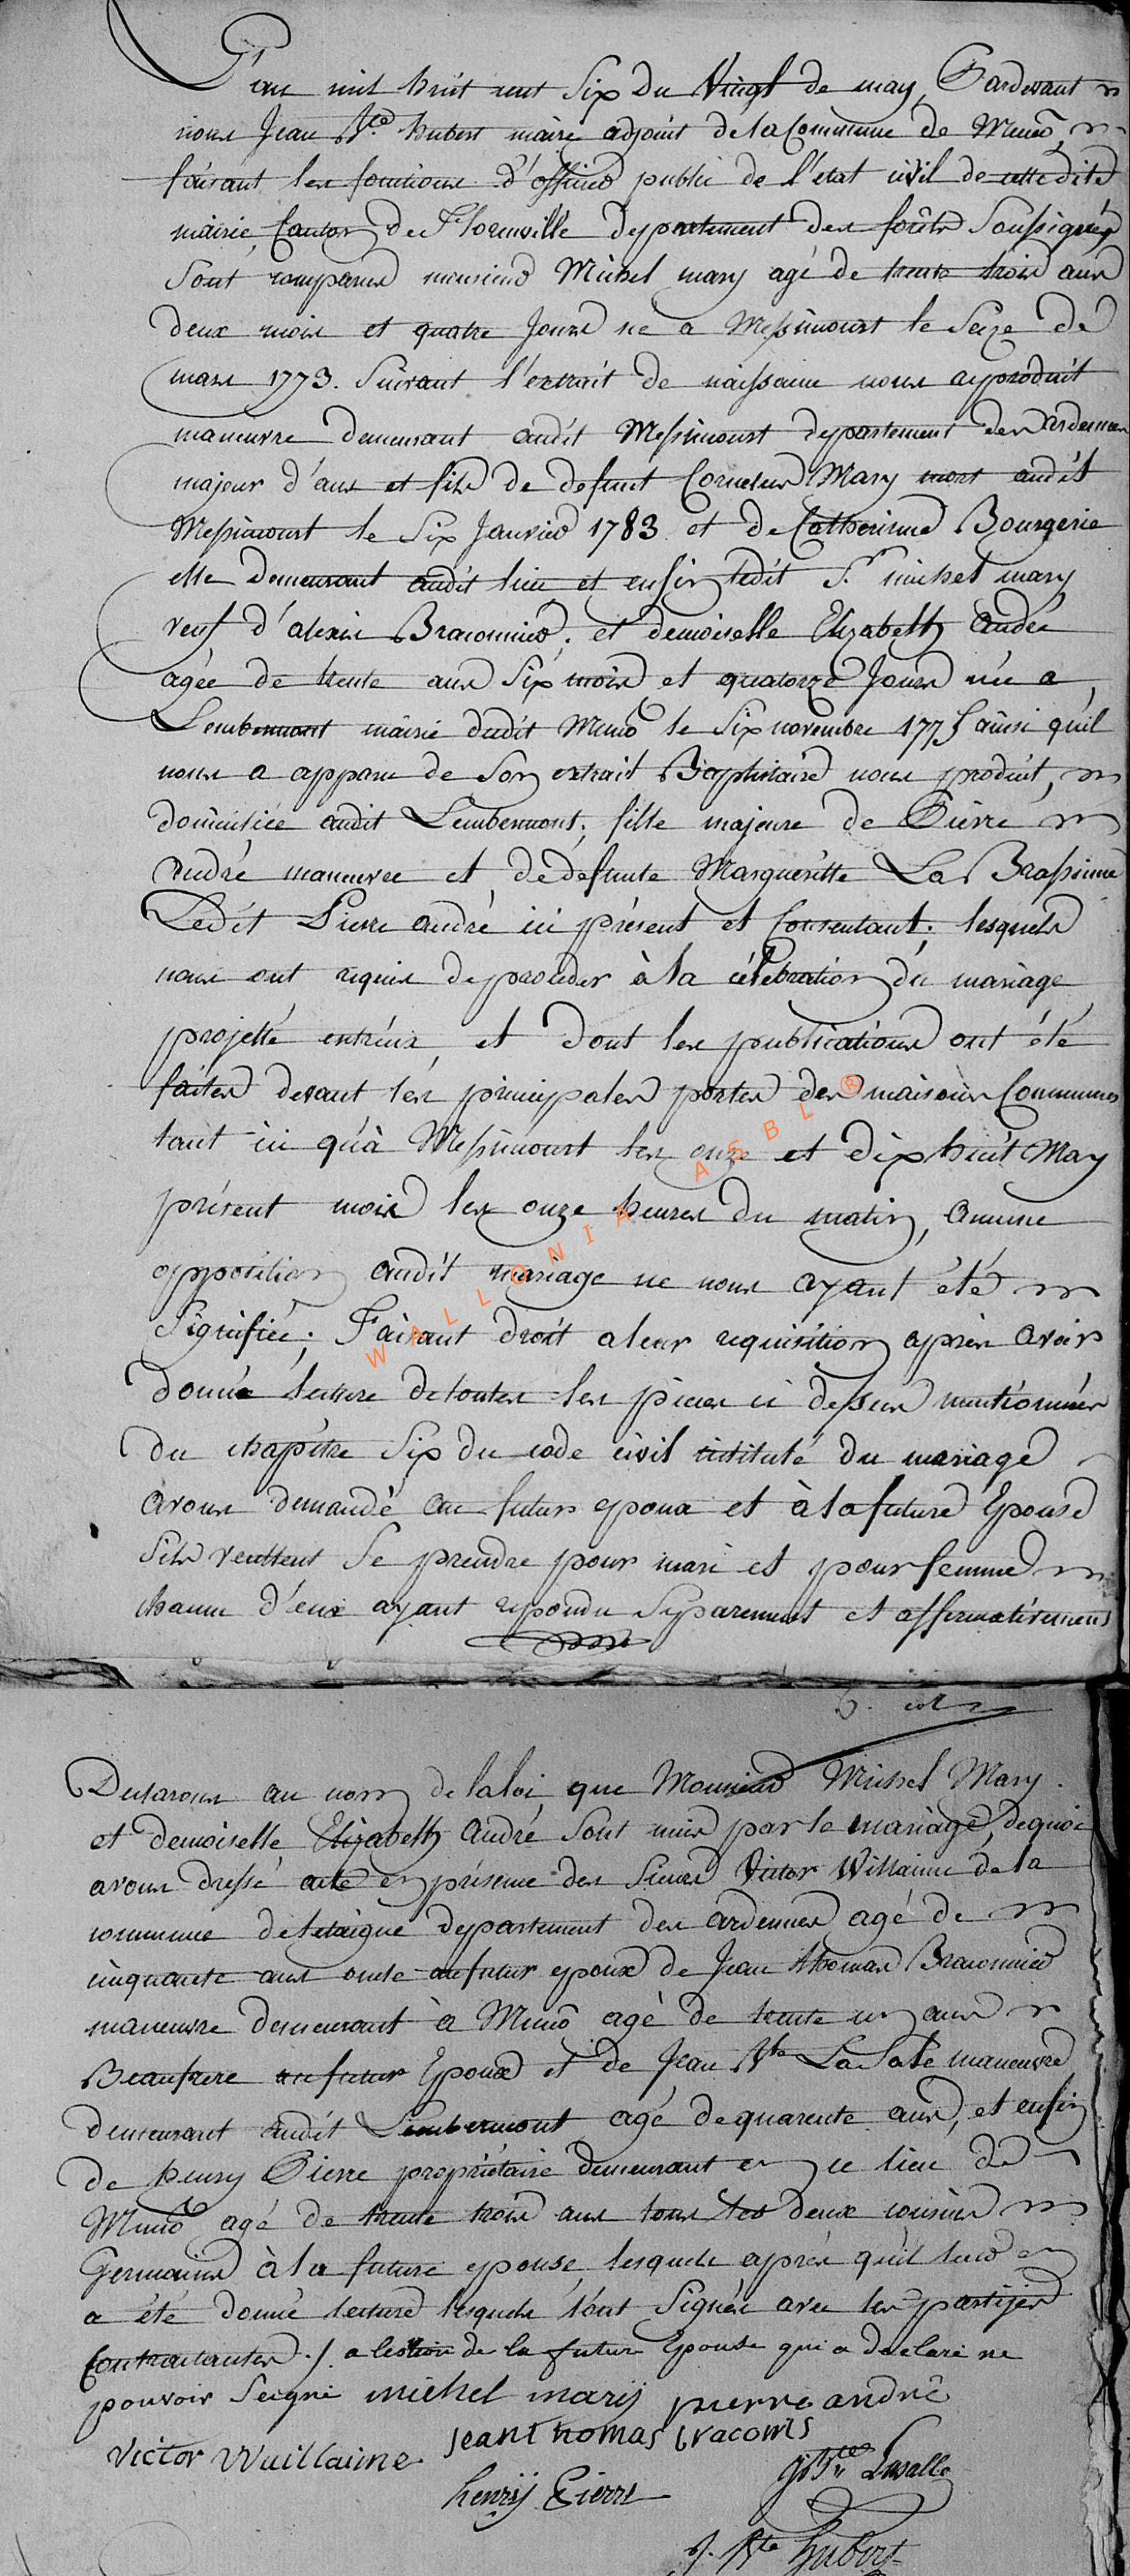 L'an mil huit cent Six du Vingt de may, Pardevant
nous Jean Bte hubert maire adjoint de la Commune de Muno,
faisant les fonctions d'officier public de l'etat civil de cette dite
mairie, Canton de Florenville departement des forêts Soussignés
Sont comparus monsieur Michel mary agé de trente trois ans
deux mois et quatre Jours né a Messincourt le Seize de
mars 1773. Suivant l'extrait de naissance nous a produit
maneuvre demeurant audit Messincourt departement des Ardennes
majeur d'ans et fils de defunt Corneleux Mary mort audit
Messincourt le Six Janvier 1783 et de Catherinne Bourgerie
elle demeurant audit lieu et enfin ledit Sr. michel mary
veuf d'alexis Braconnier; et demoiselle Elizabeth André
agée de trente ans Six mois et quatorze Jours née a
Lembermont mairie dudit Muno le Six novembre 1775 ainsi qu'il
nous a apparu de Son extrait Baptistaire nous produit,
domiciliée audit Lembermont; fille majeure de Pierre
André maneuvre et de defunte Marguéritte La Brassinne
Ledit Pierre andré ici présent et Consentant; lesquels
nous ont requis de proceder à la célébration du mariage
projetté entréux, et dont les publications ont été
faites devant les principales portes des maisons Communes
tant ici qu'à Messincourt les onze et dix huit May
présent mois les onze heures du matin, aucune
opposition audit mariage ne nous ayant été
Signifiée; Faisant droit a leur requisition après avoir
donné lecture de toutes les pièces ci dessus mentionnées
du chapitre Six du code civil intitulé du mariage
avons demandé au futur epoux et à la future Epouse
S'ils veullent Se prendre pour mari et pour femme
chacun d'eux ayant repondu Séparement et affirmativement
WALLONIA ASBL ®
Declarons au nom de la loi que Monsieur Michel Mary
et demoiselle Elizabeth André Sont unis par le mariage, de quoi
avons dressé acte en présence des Sieurs Victor Willaime de la
commune de tetaigne departement des ardennes agé de
cinquante ans oncle au futur epoux de Jean thomas Braconnier
maneuvre demeurant à Muno agé de trente un ans
Beaufrere au futur Epoux et de Jean Bte La Salle maneuvre
demeurant audit Lembermont agé de quarente ans, et enfin
de henry Pierre propriétaire demeurant en ce lieu de
Muno agé de trente trois ans tous les deux cousins
Germains à la future epouse, lesquels après qu'il leur en
a été donné lecture lesquels l'ont Signés avec les partijes
Contractantes ./. a lextion de la future Epouse qui a declaré ne
pouvoir Seigné michel marij pierre andrè
Jean thomas bracones
Victor Wuillaime
JBte Lasalle
henrÿ Pierre
J. Bte hubert